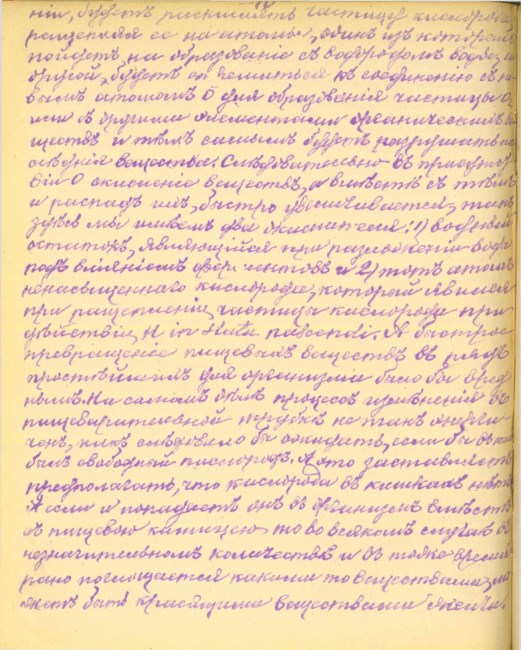 ніи, будетъ расщеплять частицу кислорода
расщепляя ее на атомы, одинъ изъ которыхъ
пойдетъ на образованіе съ водородомъ воды, а
другой будетъ стремиться къ соединенію съ но
вымъ атомомъ O для образованія частицы O₂
или съ другими элементами органическихъ ве
ществъ и тѣмъ самымъ будетъ разрушать по
слѣднія вещества. Слѣдовательно въ присутст
віи O окисленіе веществъ, а вмѣстѣ съ тѣмъ
и распадъ ихъ, быстро увеличивается, такъ
здѣсь мы имѣемъ два окислителя: 1) водный
остатокъ, являющійся при разложеніи воды
подъ вліяніемъ ферментовъ и 2) тотъ атомъ
ненасыщеннаго кислорода, который явился
при расщепленіи частицы кислорода при
дѣйствіи H in statu nascendi. А быстрое
превращеніе пищевыхъ веществъ въ рядъ
простѣйшихъ для организма было бы вред
нымъ. На самомъ дѣлѣ процессъ измѣненія въ
пищеварительной трубкѣ не такъ
ченъ, какъ слѣдовало бы ожидать, если бы въ ней
былъ свободный кислородъ. А это заставляетъ
предполагать, что кислорода въ кишкахъ нѣтъ
А если и попадаетъ онъ въ организмъ вмѣстѣ
съ пищевою кашицею, то во всякомъ случаѣ въ
незначительномъ количествѣ и въ тоже время
рано поглощается какими то веществами, мо
жетъ быть красящими веществами